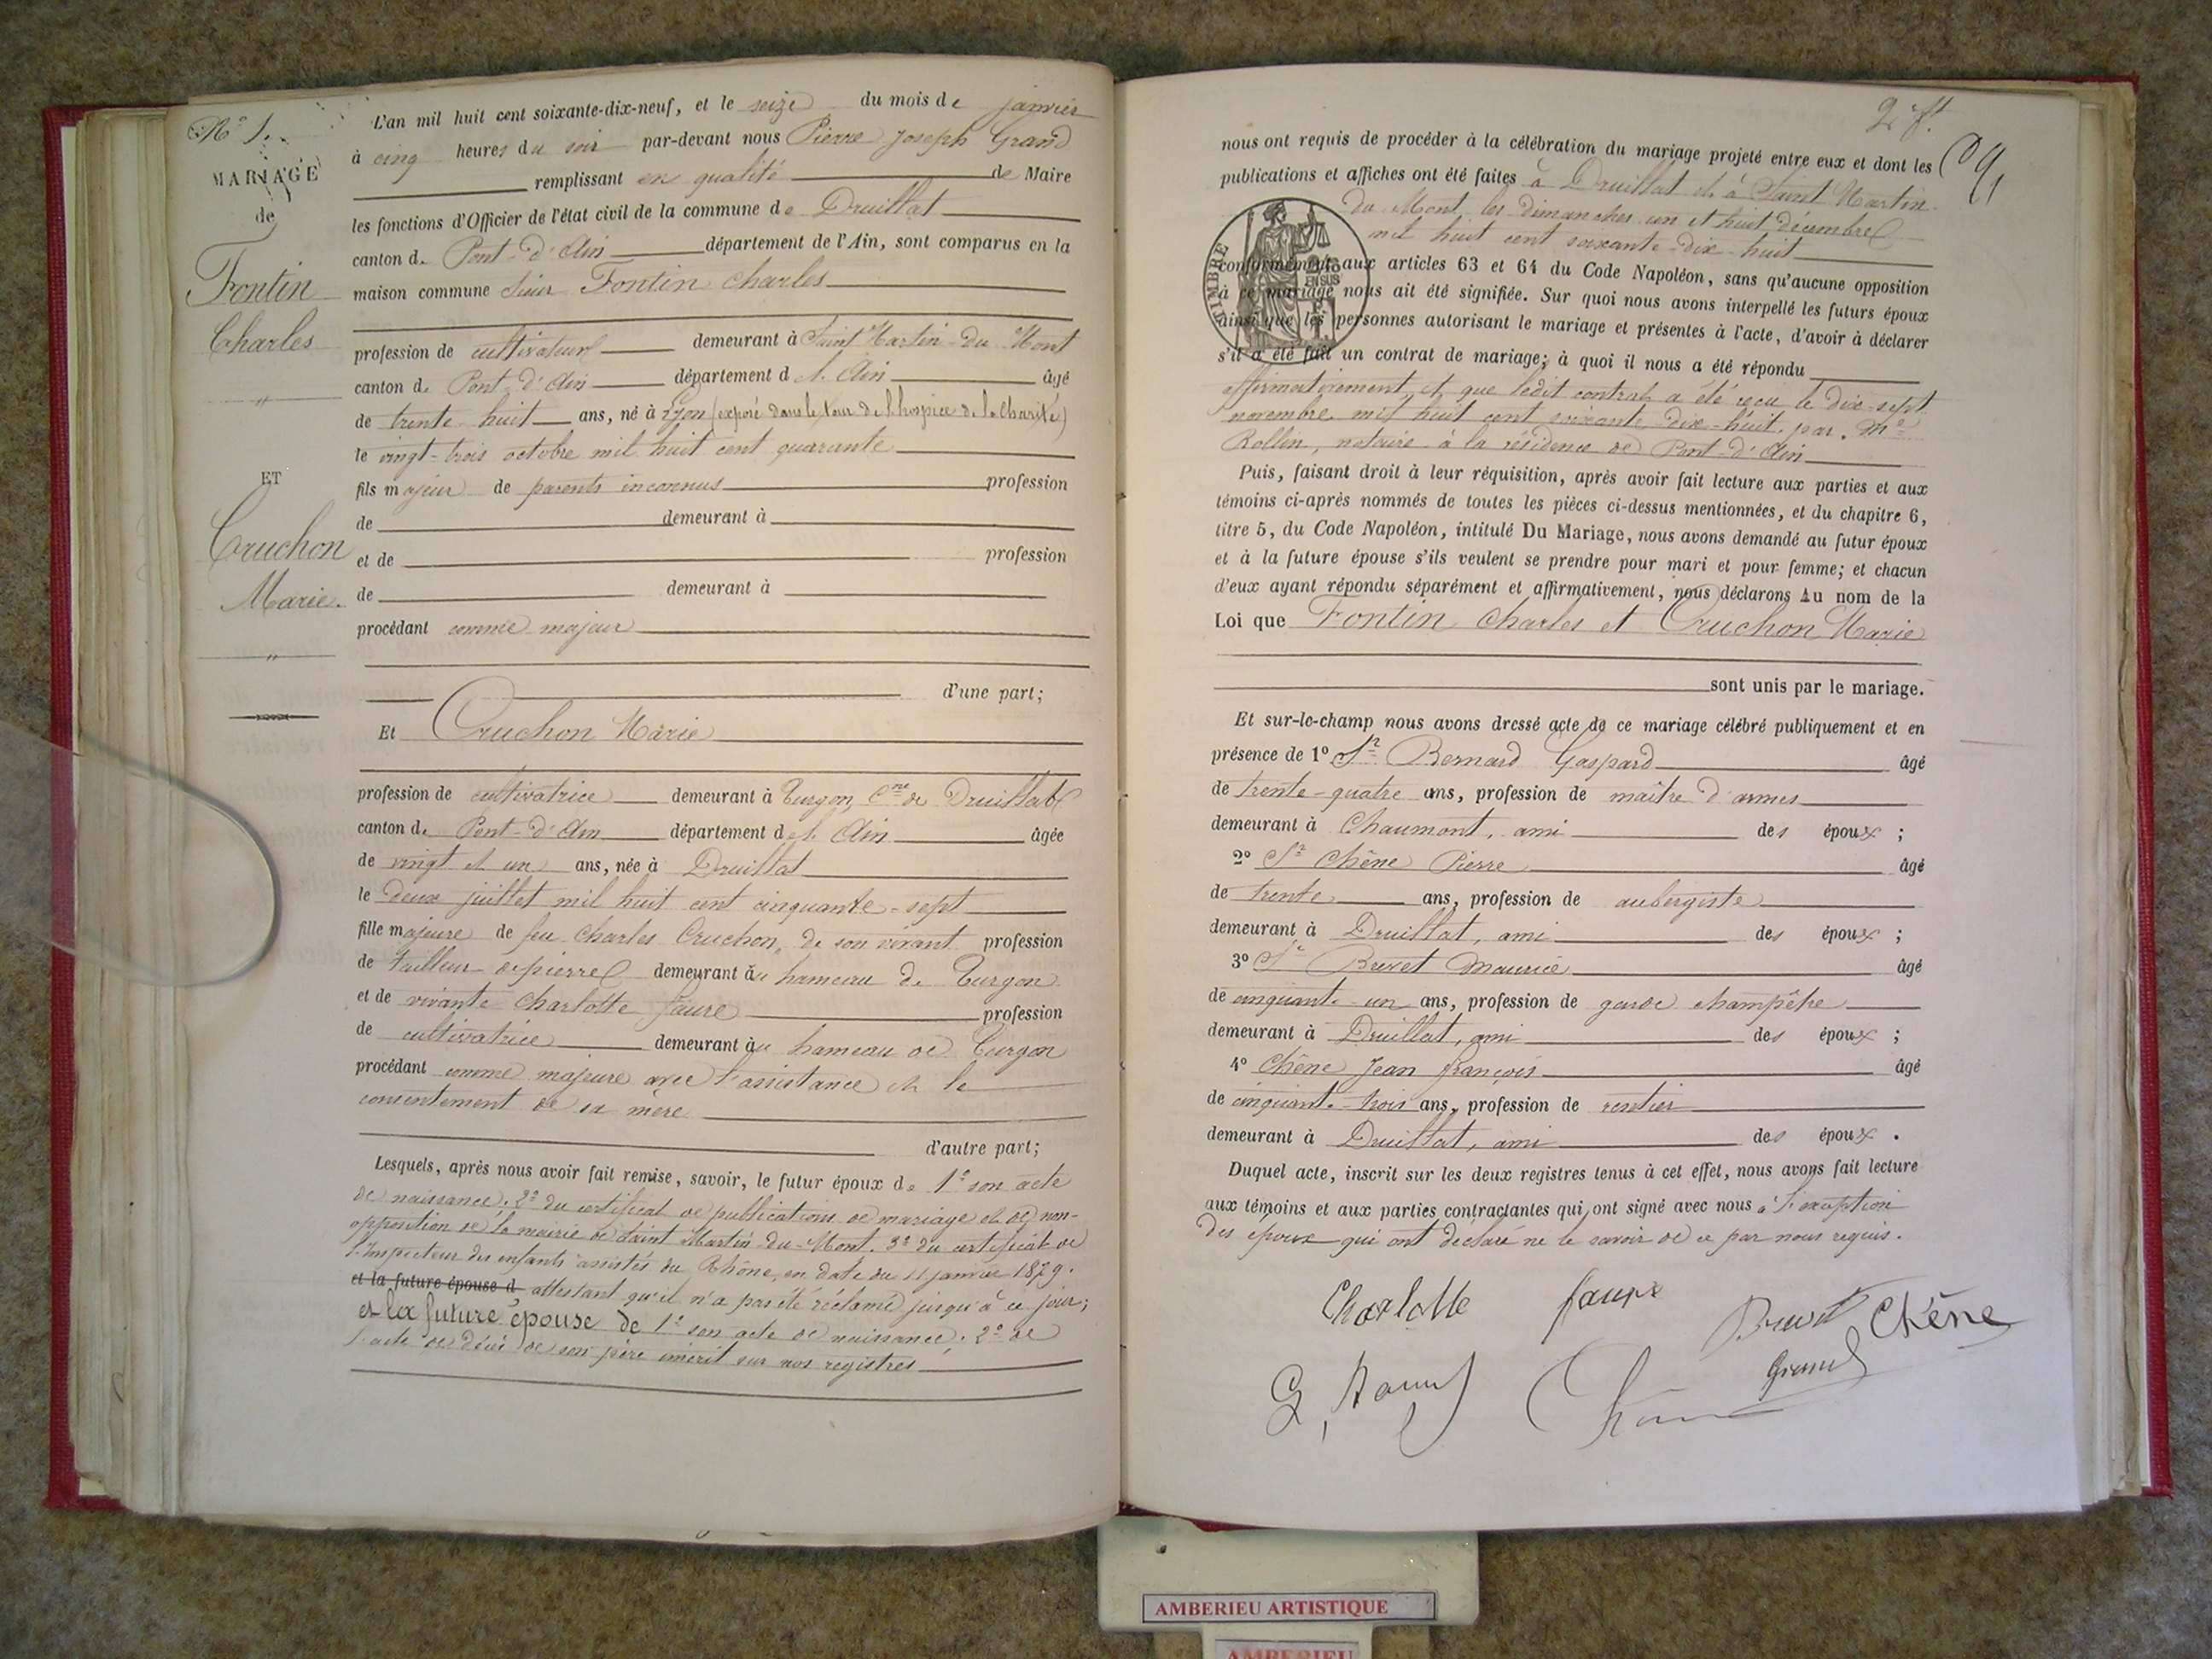 N° 1.
MARIAGE
de
Fontin
Charles
ET
Cruchon
Marie.
L'an mil huit cent soixante-dix-neuf, et le seize du mois de janvier
à cinq heures du soir par-devant nous Pierre Joseph Grand
remplissant en qualité de Maire
les fonctions d'Officier de l'état civil de la commune de Druillat
canton d. Pont-d'Ain département de l'Ain, sont comparus en la
maison commune sieur Fontin Charles
profession de cultivateur demeurant à Saint Martin-du Mont
canton d. Pont-d'Ain département de l'Ain âgé
de trente huit ans, né à Lyon (exposé dans le tour de l'hospice de la Charité)
le vingt-trois octobre mil huit cent quarante
fils majeur de parents inconnus profession
de demeurant à
et de profession
de demeurant à
procédant comme majeur
d'une part;
Et Cruchon Marie
profession de cultivatrice demeurant à Turgon, Cne de Druillat
canton d. Pont-d'Ain département de l'Ain âgée
de vingt et un ans, née à Druillat
le deux juillet mil huit cent cinquante-sept
fille majeure de feu Charles Cruchon, de son vivant profession
de tailleur de pierre demeurant au hameau de Turgon
et de vivante Charlotte Faure profession
de cultivatrice demeurant au hameau de Turgon
procédant comme majeure avec l'assistance et le
consentement de sa mère
d'autre part;
Lesquels, après nous avoir fait remise, savoir, le futur époux de 1° son acte
de naissance; 2° du certificat de publications de mariage et de non-
opposition de la mairie de Saint Martin-du-Mont. 3° du certificat de
l'Inspecteur des enfants assistés du Rhône, en date du 11 janvier 1879.
et la future épouse d attestant qu'il n'a pas été réclamé jusqu'à ce jour;
et la future épouse de 1° son acte de naissance; 2° de
l'acte de décès de son père inscrit sur nos registres
2 ft.
nous ont requis de procéder à la célébration du mariage projeté entre eux et dont les
publications et affiches ont été faites à Druillat et à Saint Martin
du Mont les dimanches un et huit décembre
mil huit cent soixante-dix-huit
TIMBRE
conformément aux articles 63 et 64 du Code Napoléon, sans qu'aucune opposition
à ce mariage nous ait été signifiée. Sur quoi nous avons interpellé les futurs époux
ainsi que les personnes autorisant le mariage et présentes à l'acte, d'avoir à déclarer
s'il a été fait un contrat de mariage; à quoi il nous a été répondu
affirmativement, et que ledit contrat a été reçu le dix-sept
novembre mil huit cent soixante-dix-huit, par Me
Rollin, notaire à la résidence de Pont-d'Ain
Puis, faisant droit à leur réquisition, après avoir fait lecture aux parties et aux
témoins ci-après nommés de toutes les pièces ci-dessus mentionnées, et du chapitre 6,
titre 5, du Code Napoléon, intitulé Du Mariage, nous avons demandé au futur époux
et à la future épouse s'ils veulent se prendre pour mari et pour femme; et chacun
d'eux ayant répondu séparément et affirmativement, nous déclarons Au nom de la
Loi que Fontin Charles et Cruchon Marie
sont unis par le mariage.
Et sur-le-champ nous avons dressé acte de ce mariage célébré publiquement et en
présence de 1° Sr Bernard Gaspard âgé
de trente-quatre ans, profession de maître d'armes
demeurant à Chaumont, ami des époux ;
2° Sr Chêne Pierre âgé
de trente ans, profession de aubergiste
demeurant à Druillat, ami des époux ;
3° Sr Buvet Maurice âgé
de cinquante-un ans, profession de garde champêtre
demeurant à Druillat, ami des époux ;
4° Chêne Jean François âgé
de cinquante-trois ans, profession de rentier
demeurant à Druillat, ami des époux .
Duquel acte, inscrit sur les deux registres tenus à cet effet, nous avons fait lecture
aux témoins et aux parties contractantes qui ont signé avec nous à l'exception
des époux qui ont déclaré ne le savoir de ce par nous requis.
Charlotte faure
Buvet Chêne
Grand
AMBERIEU ARTISTIQUE
AMBERIEU